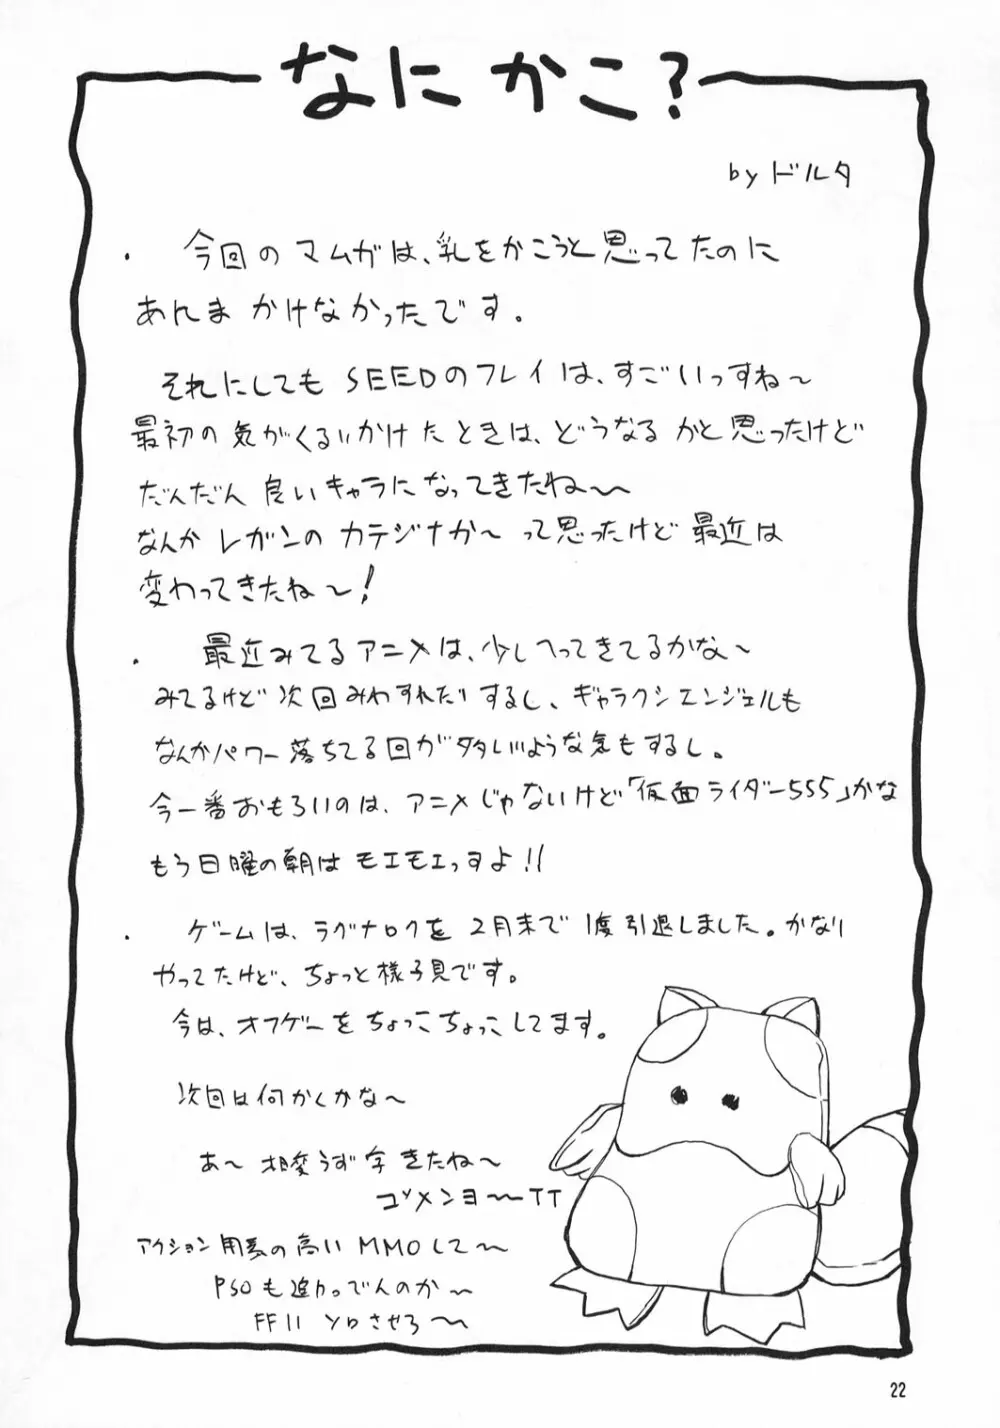 なに かこ?
by ドルタ
・ 今回の マムガは、乳をかこうと思ってたのに
あんま かけなかったです。
それにしても SEEDのフレイは、すごいっすね～
最初の 気がくるいかけたときは、どうなる かと思ったけど
だんだん 良いキャラになってきたね～
なんか レガンの カテジナか～ って思ったけど 最近は
変わってきたね～!
・ 最近みてるアニメは、少しへってきてるかな～
みてるけど 次回みわすれたりするし、ギャラクシエンジェルも
なんかパワー落ちてる回が多いような気もするし。
今一番おもろいのは、アニメじゃないけど「仮面ライダー555」かな
もう日曜の朝は モエモエっすよ!!
・ ゲームは、ラグナロクを 2月末で 1度引退しました。かなり
やってたけど、ちょっと様子見です。
今は、オフゲーを ちょっこちょっこしてます。
次回は何かくかな～
あ～ 相変らず字 きたね～
ゴメンヨ～TT
アクション 用素の 高い MMOして～
PSOも 死んでんのか～
FF11 ソロさせろ～
22